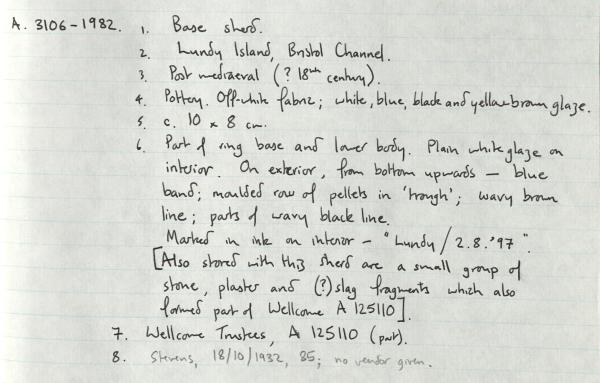 A. 3106-1982. 1. Base sherd.
2. Lundy Island, Bristol Channel.
3. Post mediaeval (? 18th century).
4. Pottery. Off-white fabric; white, blue, black and yellow-brown glaze.
5. c. 10 x 8 cm.
6. Part of ring base and lower body. Plain white glaze on
interior. On exterior, from bottom upwards – blue
band; moulded row of pellets in 'trough'; wavy brown
line; parts of wavy black line.
Marked in ink on interior – "Lundy/2.8.'97".
[Also stored with this sherd are a small group of
stone, plaster and (?) slag fragments which also
formed part of Wellcome A 125110].
7. Wellcome Trustees, A 125110 (part).
8. Stevens, 18/10/1932, 85; no vendor given.